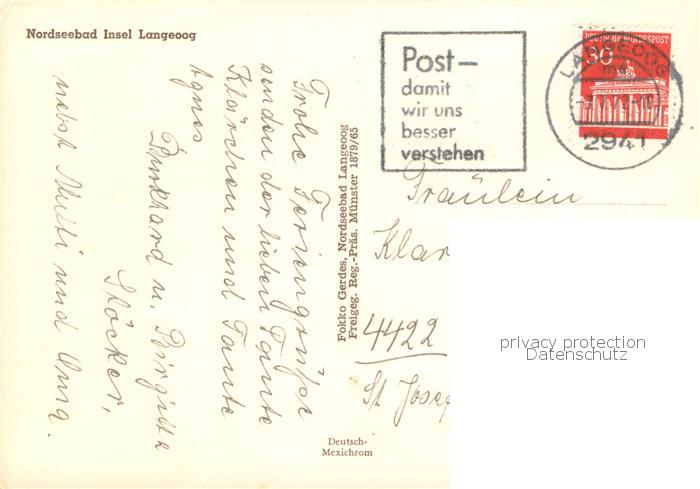 Nordseebad Insel Langeoog
Frohe Feriengrüße
senden der lieben Tante
Klärchen und Tante
Agnes
Burkhard u. Birgitta
Stöcker,
nebst Mutti und Oma.
Fokko Gerdes, Nordseebad Langeoog
Freigeg. Reg.-Präs. Münster 1879/65
Deutsch-
Mexichrom
Post—
damit
wir uns
besser
verstehen
DEUTSCHE BUNDESPOST
30
LANGEOOG
2941
Fräulein
Klar
4422
St. Josef
privacy protection
Datenschutz